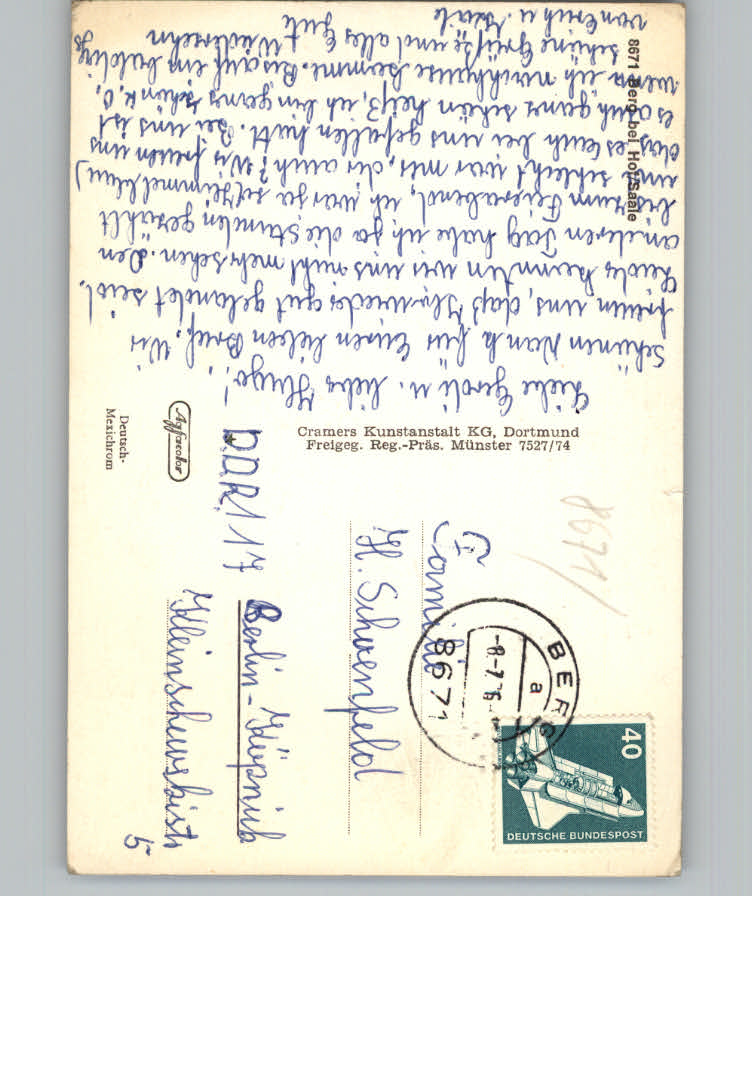 8671 Berg bei Hof/Saale
Liebe Gerdi u. lieber Hugo!
Schönen Dank für Euren lieben Brief. Wir
freuen uns, daß Ihr wieder gut gelandet seid.
Leider konnten wir uns nicht mehr sehen. Den
anderen Tag habe ich ja die Stunden gezählt
bis zum Feierabend, ich war ja so (Himmelblau)
und schlecht war mir, dir auch? Wir freuen uns
daß es Euch bei uns gefallen hat. Bei uns ist
es auch ganz schön heiß, ich bin ganz schön K.O.
wenn ich nachhause komme. Bis auf ein baldiges
schöne Grüße und alles Gute Wiedersehn
von Erich u.
Cramers Kunstanstalt KG, Dortmund
Freigeg. Reg.-Präs. Münster 7527/74
Agfacolor
Deutsch-
Mexichrom
8671
BERG
a
-8.-7.76
8671
40
DEUTSCHE BUNDESPOST
Familie
H. Schoenfeld
DDR! 17
Berlin-Köpnick
5